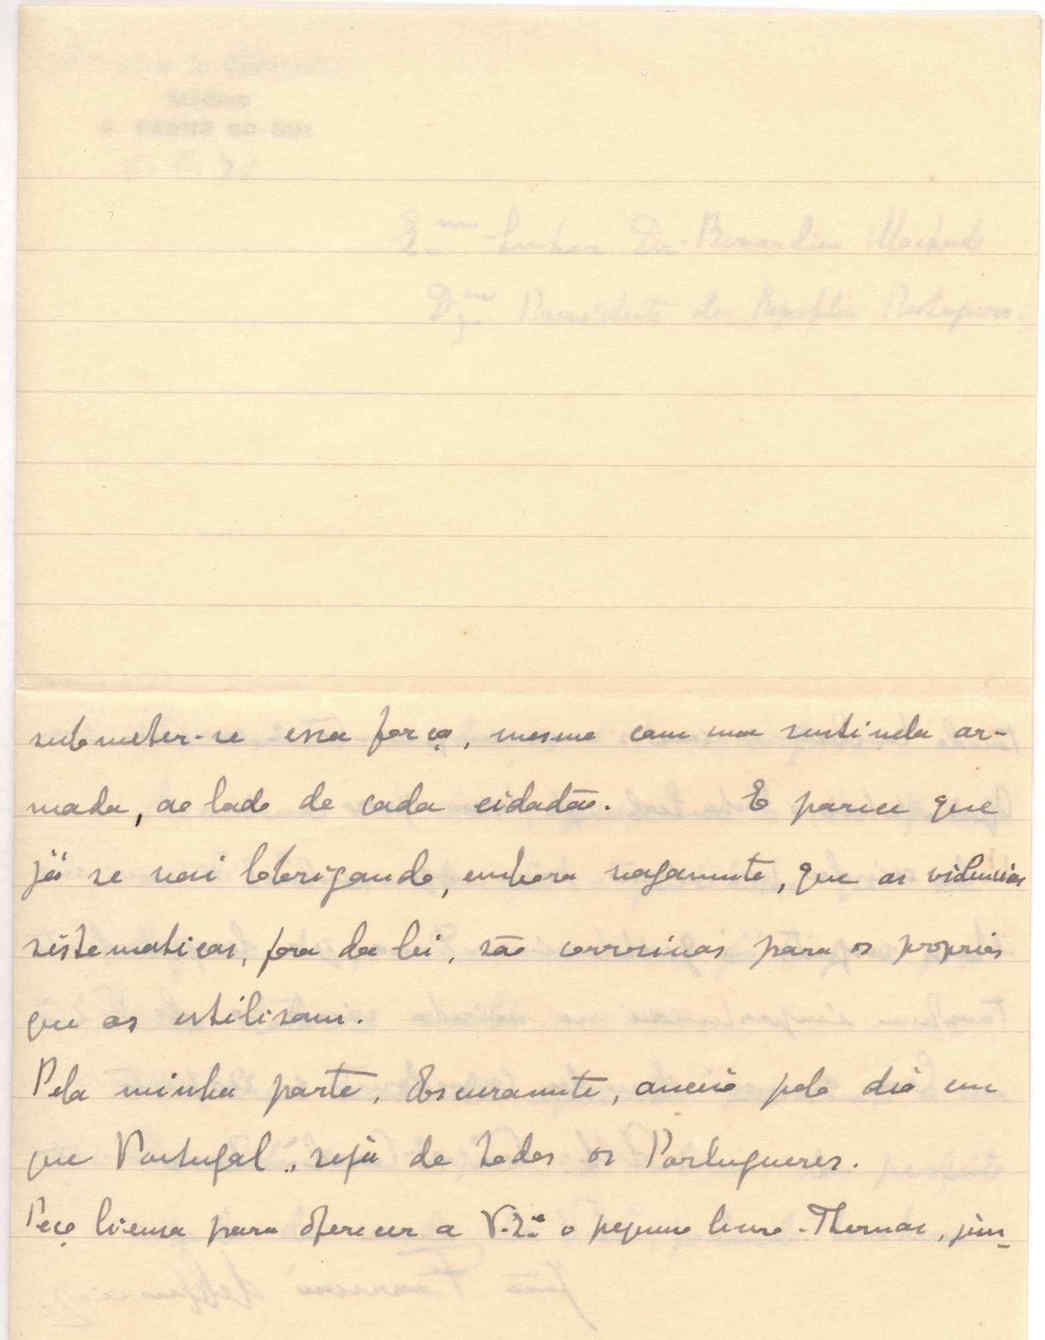 Exmo Senhor Dr. Bernardino Machado
Dmo Presidente da República Portuguesa.
submeter-se essa força, mesmo com uma sentinela ar-
mada, ao lado de cada cidadão. E parece que
já se vai lobrigando, embora vagamente, que as violencias
sistematicas, fora da lei, são corrosivas para os proprios
que as utilisam.
Pela minha parte, obscuramente, anceio pelo dia em
que Portugal, seja de todos os Portugueses.
Peço licença para oferecer a V. Exa o pequeno livro - Thomar, jun-